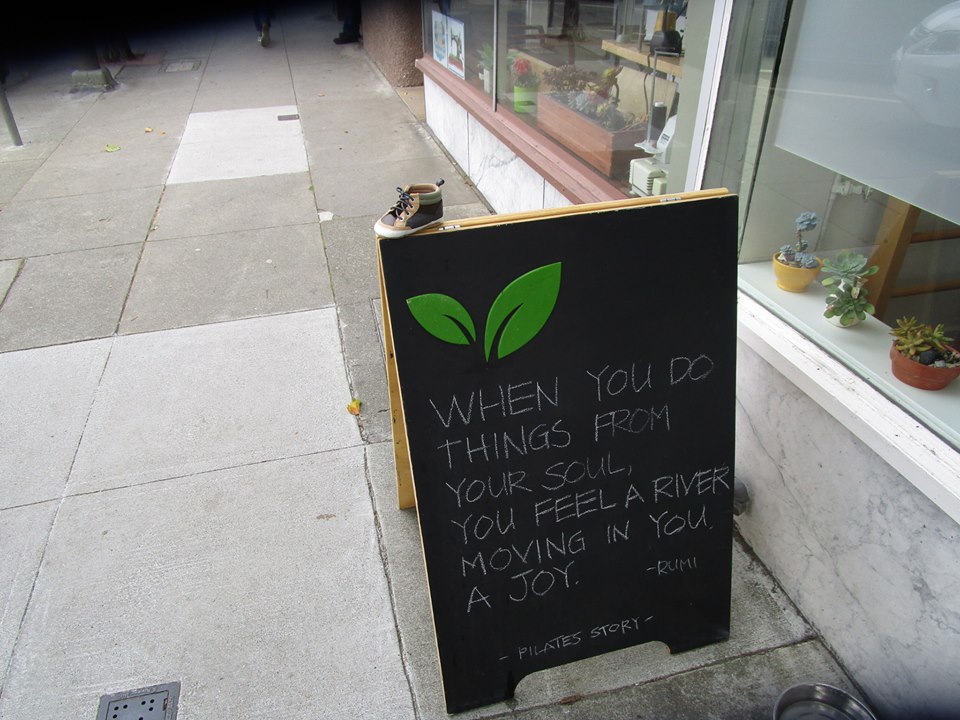 WHEN YOU DO
THINGS FROM
YOUR SOUL,
YOU FEEL A RIVER
MOVING IN YOU.
A JOY.
-RUMI
- PILATES STORY -